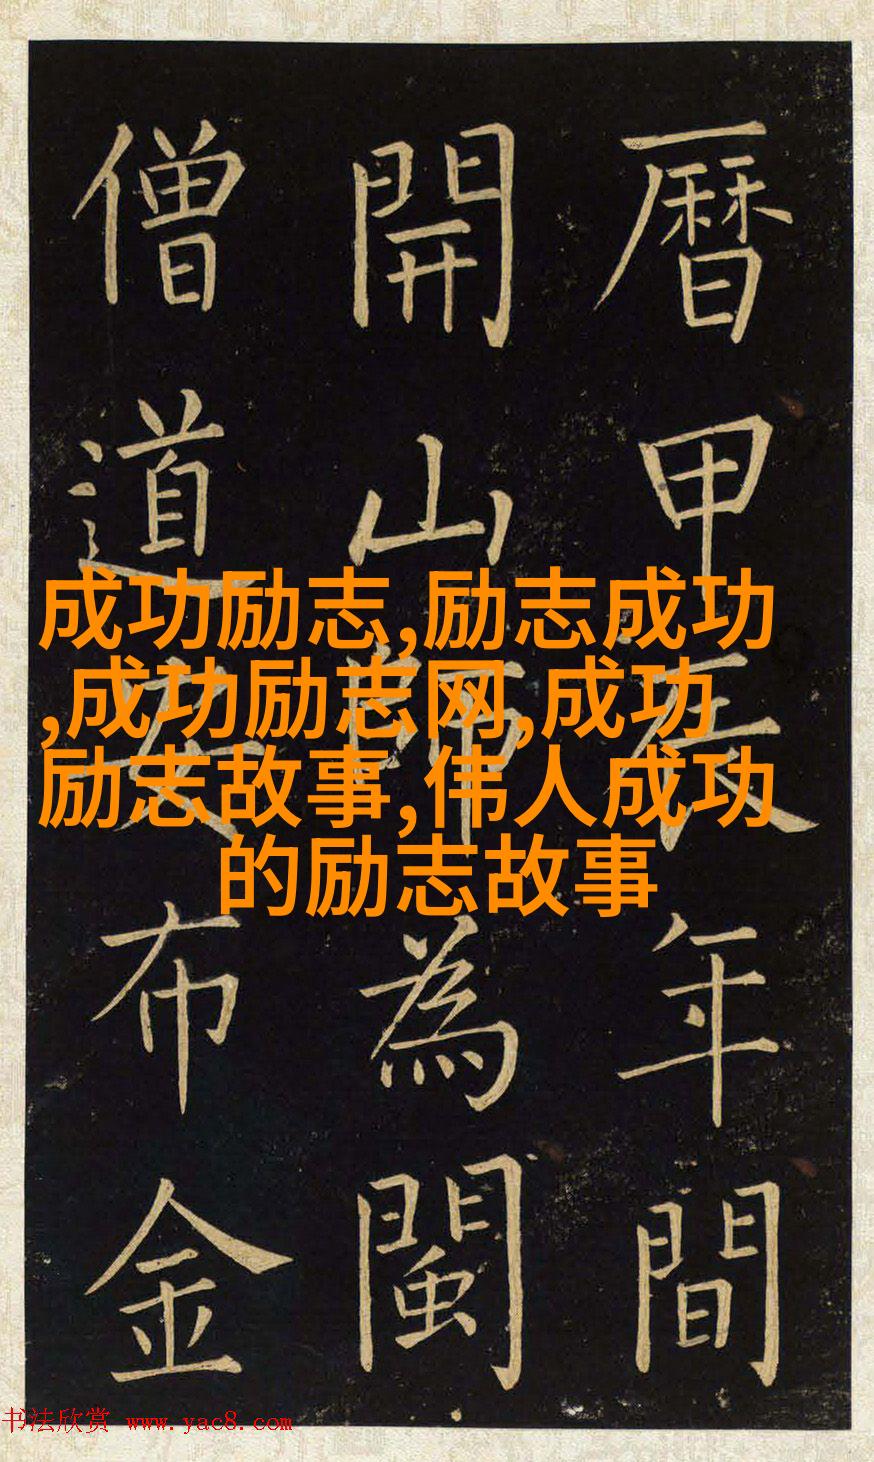 曆甲辰年間
開山師為閩
僧道安布金
成功励志,励志成功
,成功励志网,成功
励志故事,伟人成功
的励志故事
书法欣赏 www.yac8.com